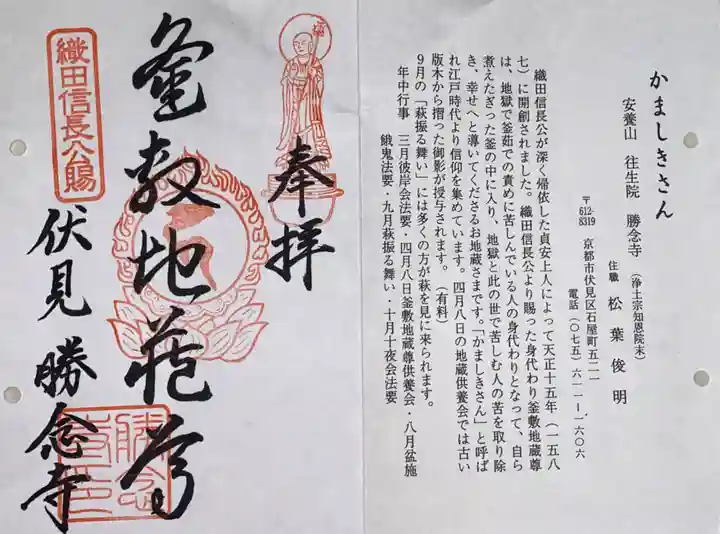 かましきさん
安養山 往生院 勝念寺 (浄土宗知恩院末)
住職 松葉俊明
〒612-8319 京都市伏見区石屋町五二一
電話 (〇七五) 六一一ー一六〇六
織田信長公が深く帰依した貞安上人によって天正十五年(一五八
七)に開創されました。織田信長公より賜った身代わり釜敷地蔵尊
は、地獄で釜茹での責めに苦しんでいる人の身代わりとなって、自ら
煮えたぎった釜の中に入り、地獄と此の世で苦しむ人の苦を取り除
き、幸せへと導いてくださるお地蔵さまです。「かましきさん」と呼ば
れ江戸時代より信仰を集めています。四月八日の地蔵供養会では古い
版木から摺った御影が授与されます。(有料)
9月の「萩振る舞い」には多くの方が萩を見に来られます。
年中行事 三月彼岸会法要・四月八日釜敷地蔵尊供養会・八月盆施
餓鬼法要・九月萩振る舞い・十月十夜会法要
奉拝
釜敷地蔵尊
織田信長公賜
伏見 勝念寺
勝念
寺印